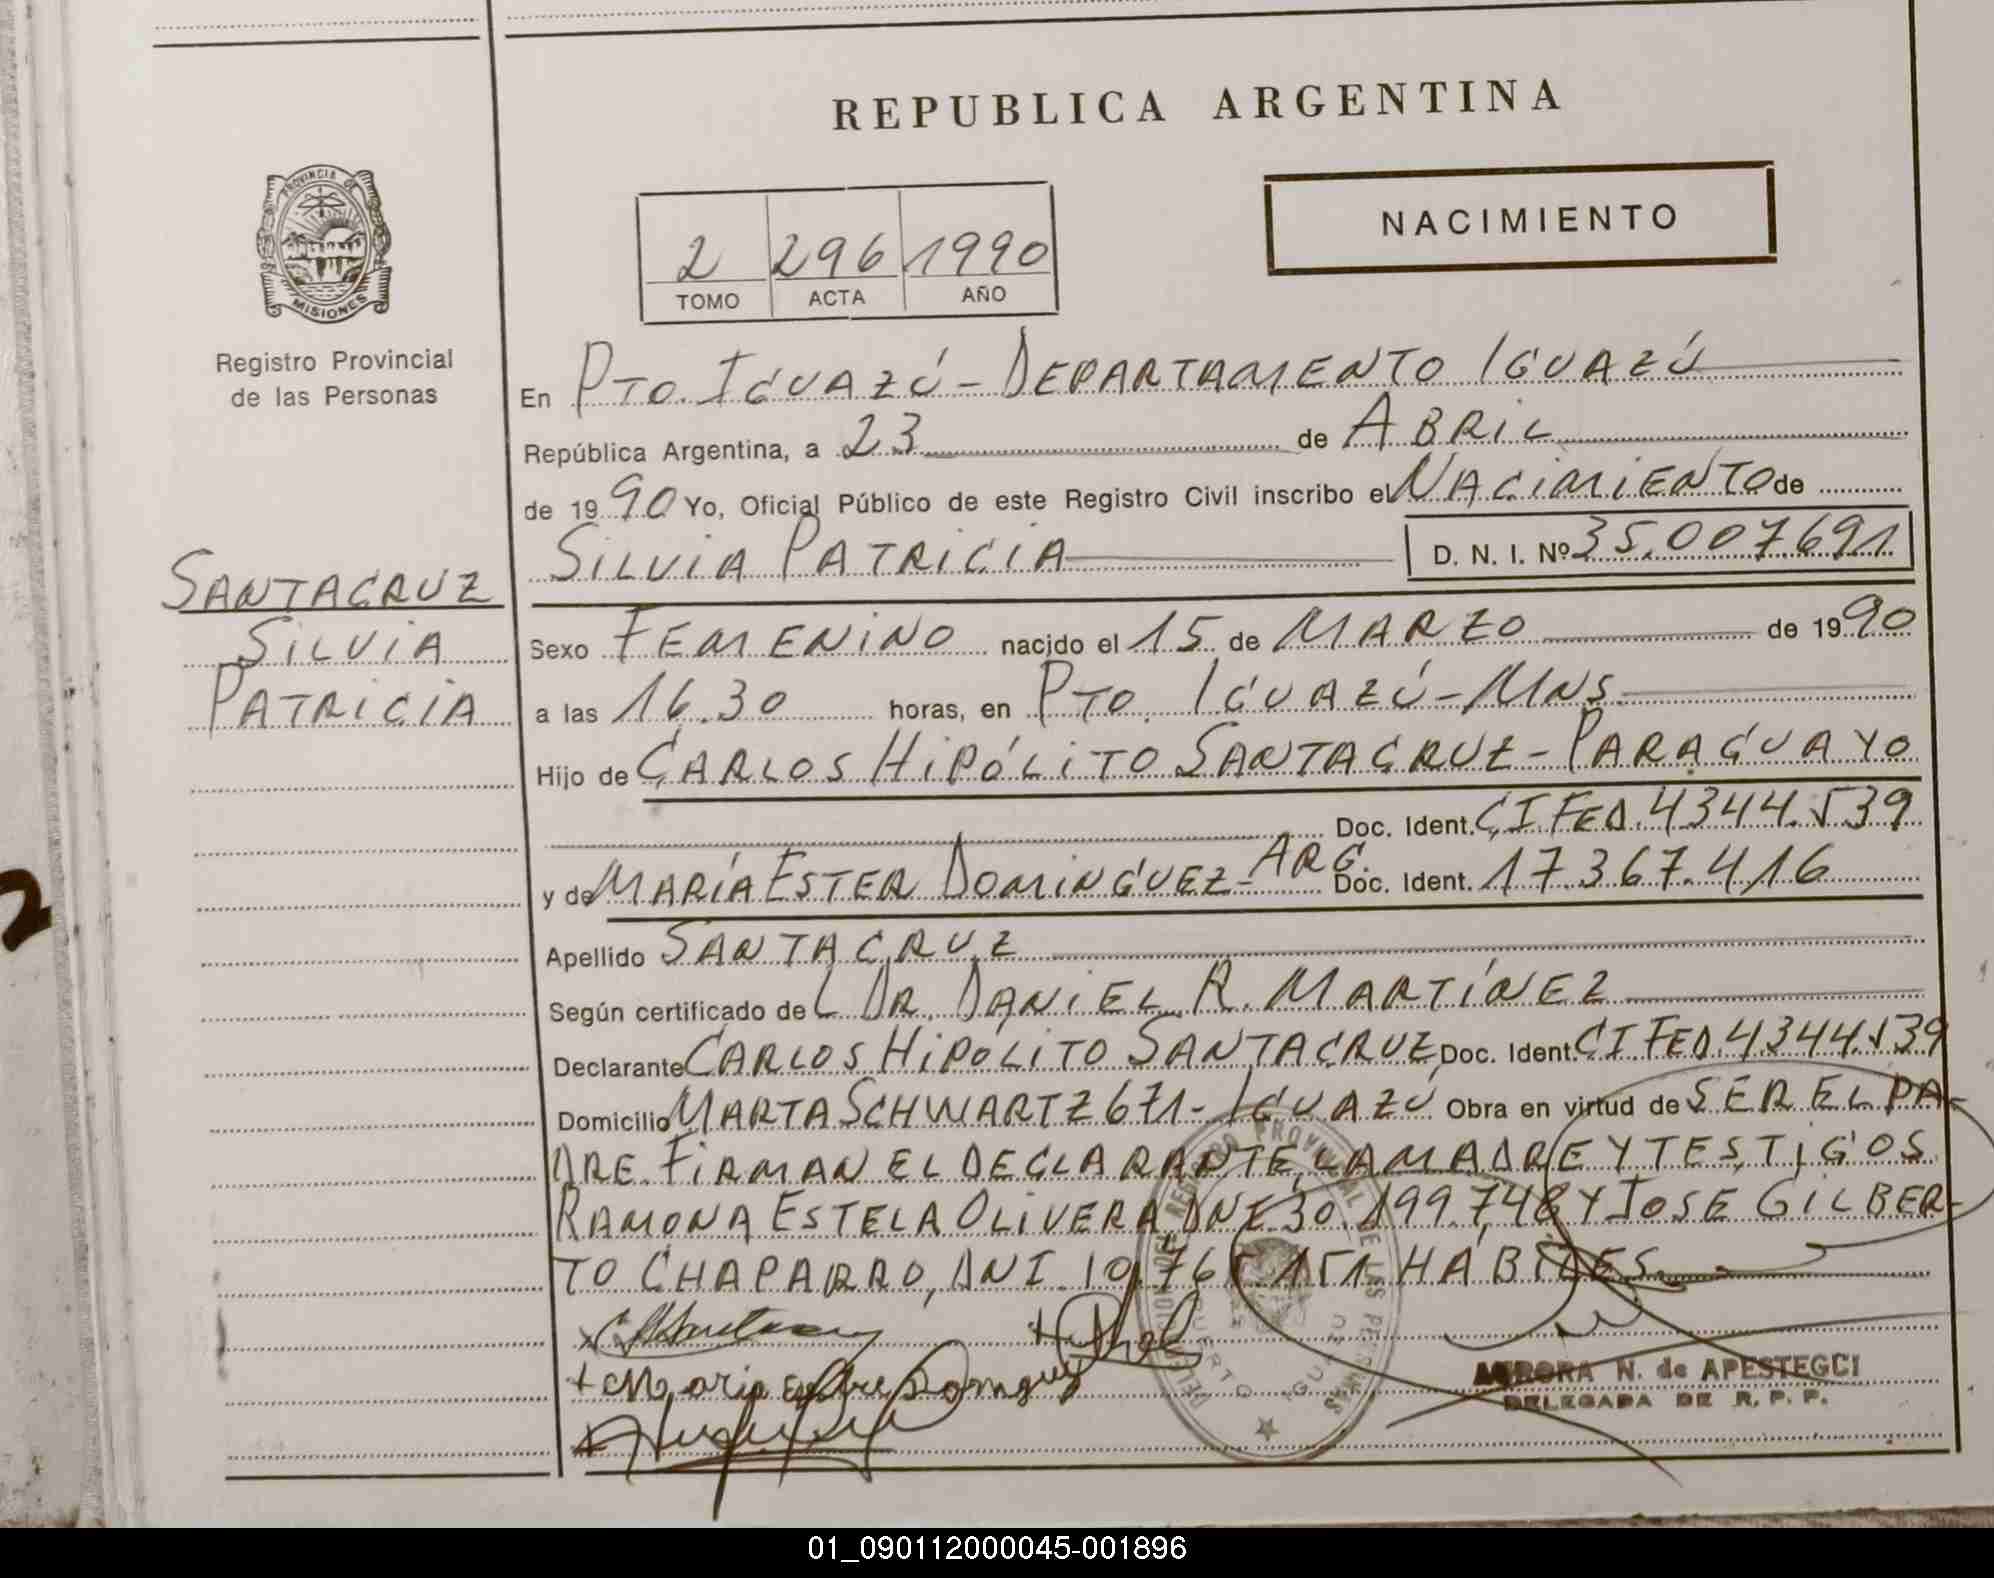 REPUBLICA ARGENTINA
PROVINCIA DE
MISIONES
Registro Provincial
de las Personas
NACIMIENTO
2 296 1990
TOMO ACTA AÑO
En PTO. IGUAZÚ - DEPARTAMENTO IGUAZÚ
República Argentina, a 23 de ABRIL
de 1990 Yo, Oficial Público de este Registro Civil inscribo el NACIMIENTO de
SILVIA PATRICIA D. N. I. Nº 35.007.691
SANTACRUZ
SILVIA
PATRICIA
Sexo FEMENINO nacido el 15 de MARZO de 1990
a las 16.30 horas, en PTO. IGUAZÚ - MNS.
Hijo de CARLOS HIPÓLITO SANTACRUZ - PARAGUAYO
Doc. Ident. CI. FED. 4344.539
y de MARÍA ESTER DOMINGUEZ - ARG. Doc. Ident. 17.367.416
Apellido SANTACRUZ
Según certificado del DR. DANIEL R. MARTÍNEZ
Declarante CARLOS HIPÓLITO SANTACRUZ, Doc. Ident. CI FED. 4344.539
Domicilio MARTA SCHWARTZ 671 - IGUAZÚ Obra en virtud de SER EL PA-
DRE. FIRMAN EL DECLARANTE, LA MADRE Y TESTIGOS
RAMONA ESTELA OLIVERA DNI 30.199.748 Y JOSE GILBER-
TO CHAPARRO, DNI. 10.765.151 HÁBILES.
Maria Ester Dominguez
AURORA N. de APESTEGUI
DELEGADA DE R. P. P.
01_090112000045-001896